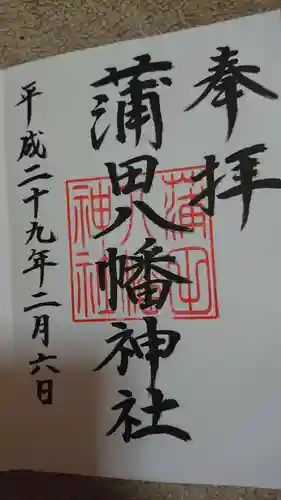 奉拝
蒲田八幡神社
蒲田八幡神社
平成二十九年二月六日